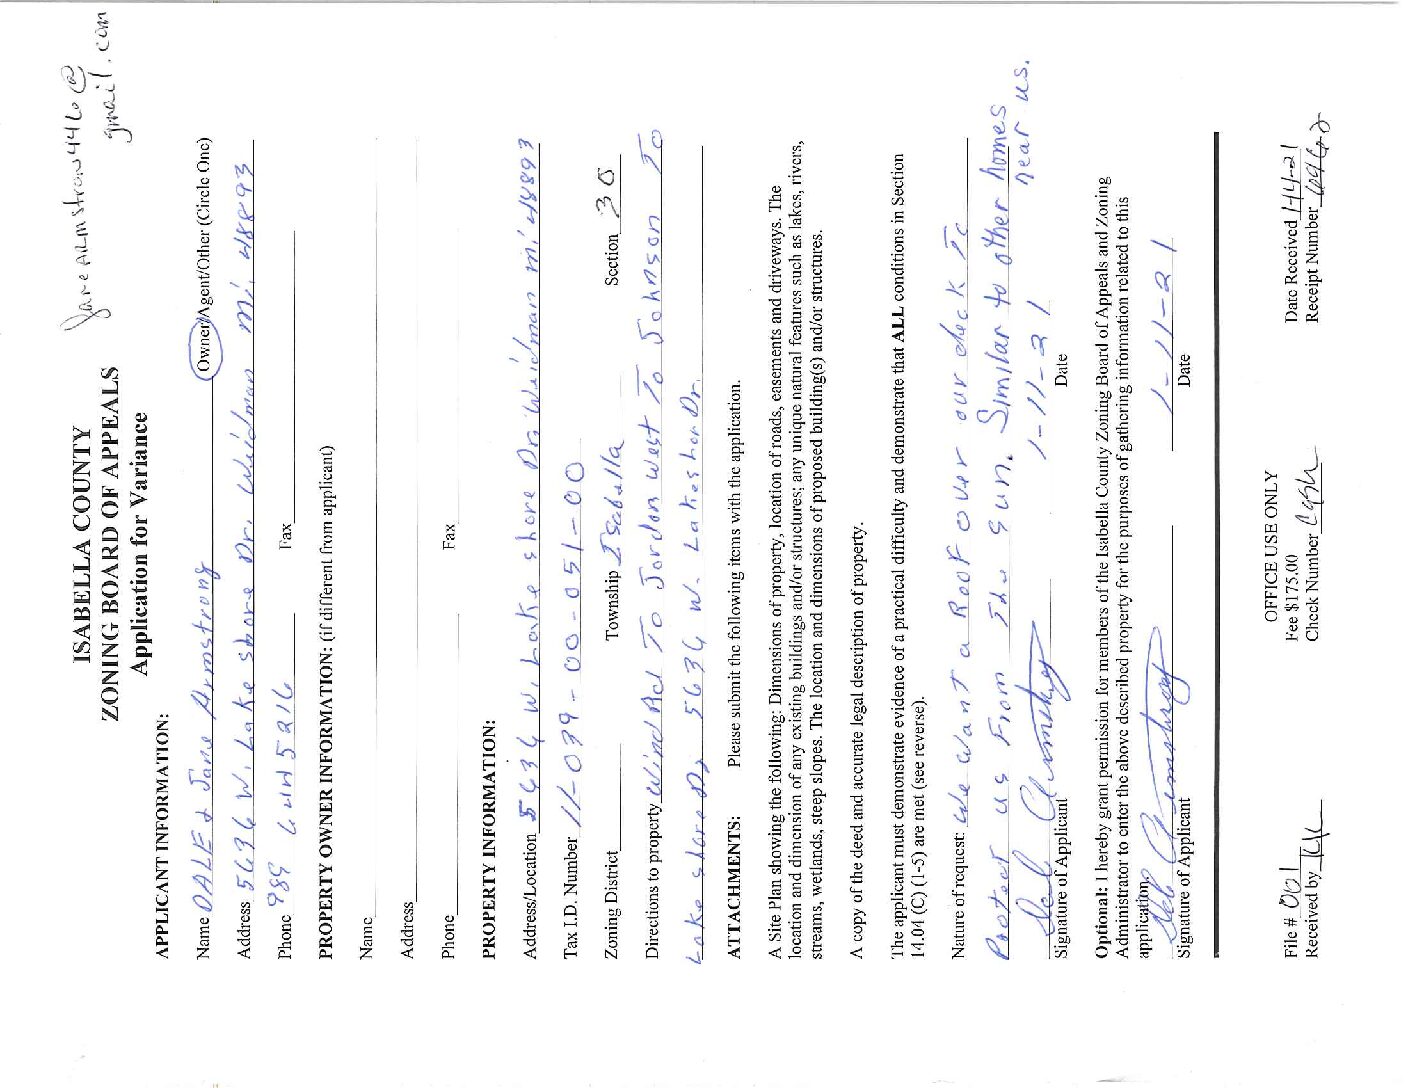 ISABELLA COUNTY
ZONING BOARD OF APPEALS
Application for Variance
gmail.com
APPLICANT INFORMATION:
Name DALE & Jane Armstrong Owner/Agent/Other (Circle One)
Address 5636 W. Lake shore Dr. Weidman mi. 48893
Phone 989 644 5216 Fax
PROPERTY OWNER INFORMATION: (if different from applicant)
Name
Address
Phone Fax
PROPERTY INFORMATION:
Address/Location 5636 W. Lake shore Dr. Weidman mi 48893
Tax I.D. Number 11-039-00-051-00
Zoning District Township Isabella Section 30
Directions to property To Jordon West To Johnson To
Lake shore Dr 5636 W. Lakeshor Dr.
ATTACHMENTS: Please submit the following items with the application.
A Site Plan showing the following: Dimensions of property, location of roads, easements and driveways. The
location and dimension of any existing buildings and/or structures; any unique natural features such as lakes, rivers,
streams, wetlands, steep slopes. The location and dimensions of proposed building(s) and/or structures.
A copy of the deed and accurate legal description of property.
The applicant must demonstrate evidence of a practical difficulty and demonstrate that ALL conditions in Section
14.04 (C) (1-5) are met (see reverse).
Nature of request: We want a Roof over our deck To
Protect us From The sun. Similar to other homes
near us.
1-11-21
Signature of Applicant Date
Optional: I hereby grant permission for members of the Isabella County Zoning Board of Appeals and Zoning
Administrator to enter the above described property for the purposes of gathering information related to this
application.
1-11-21
Signature of Applicant Date
OFFICE USE ONLY
File # 001 Fee $175.00 Date Received 1-14-21
Received by Check Number Cash Receipt Number